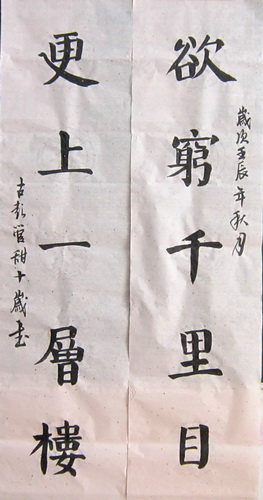 歲次壬辰年秋月
欲窮千里目
更上一層樓
古彭管甜十歲書